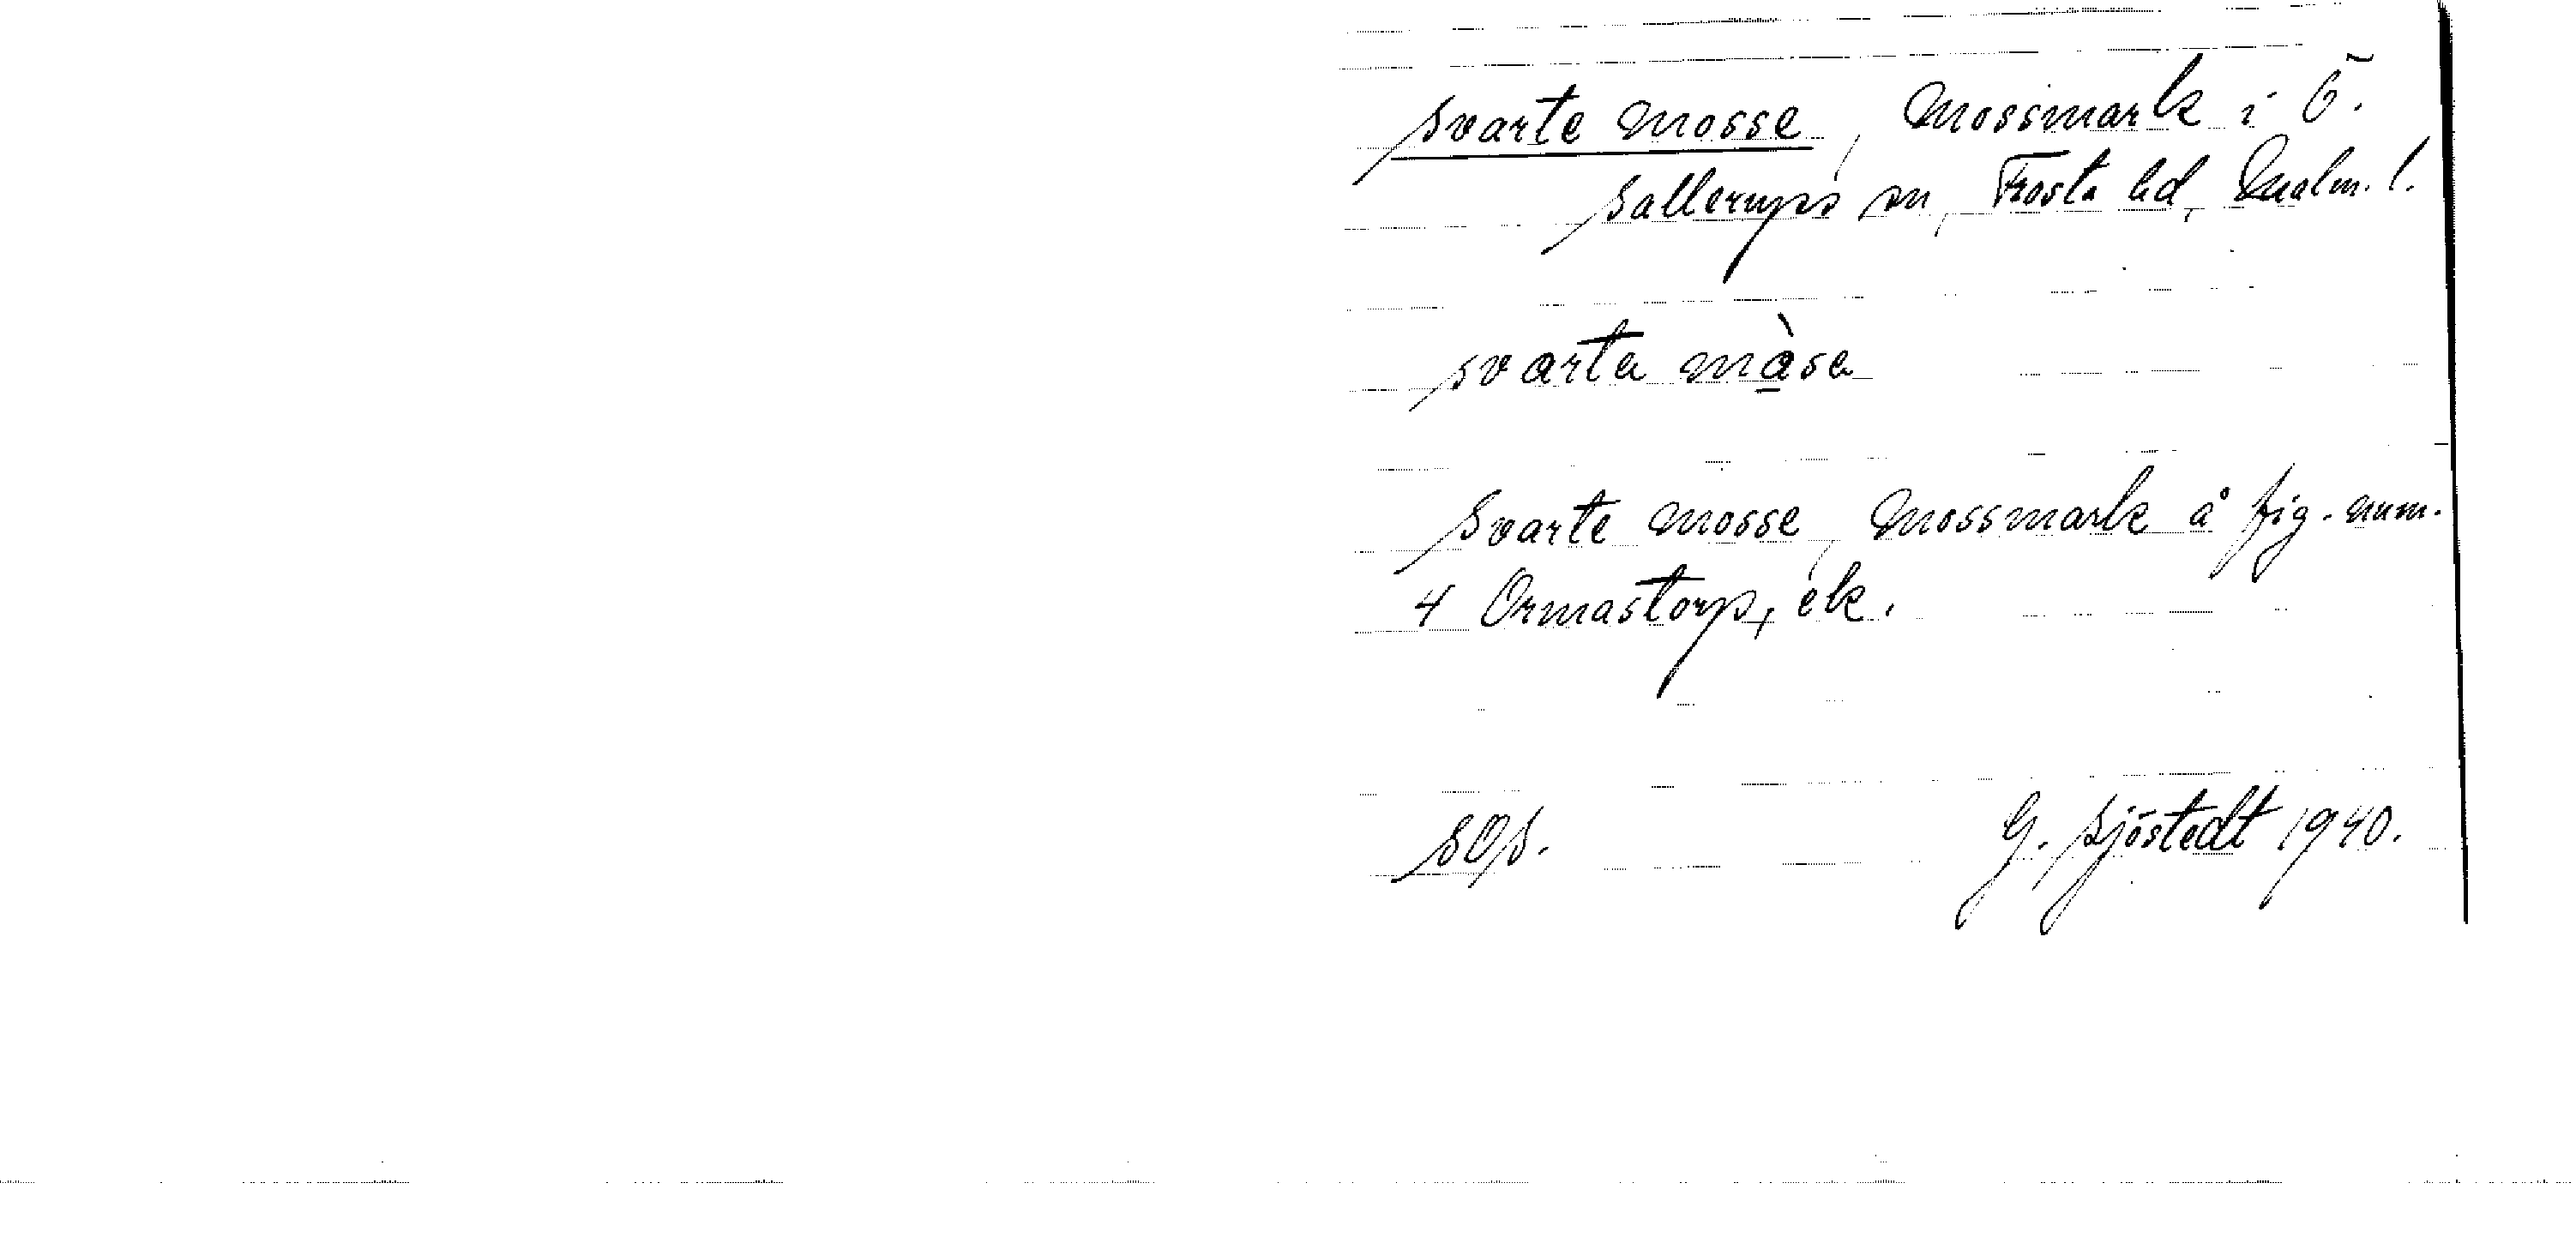 Svarte mosse, Mossmark i Ö.
Sallerups sn, Frosta hd, Malm. l.
svarta màsa
Svarte mosse, Mossmark å fig. num.
4 Ormastorp, ek.
SOS. G. Sjöstedt 1940.